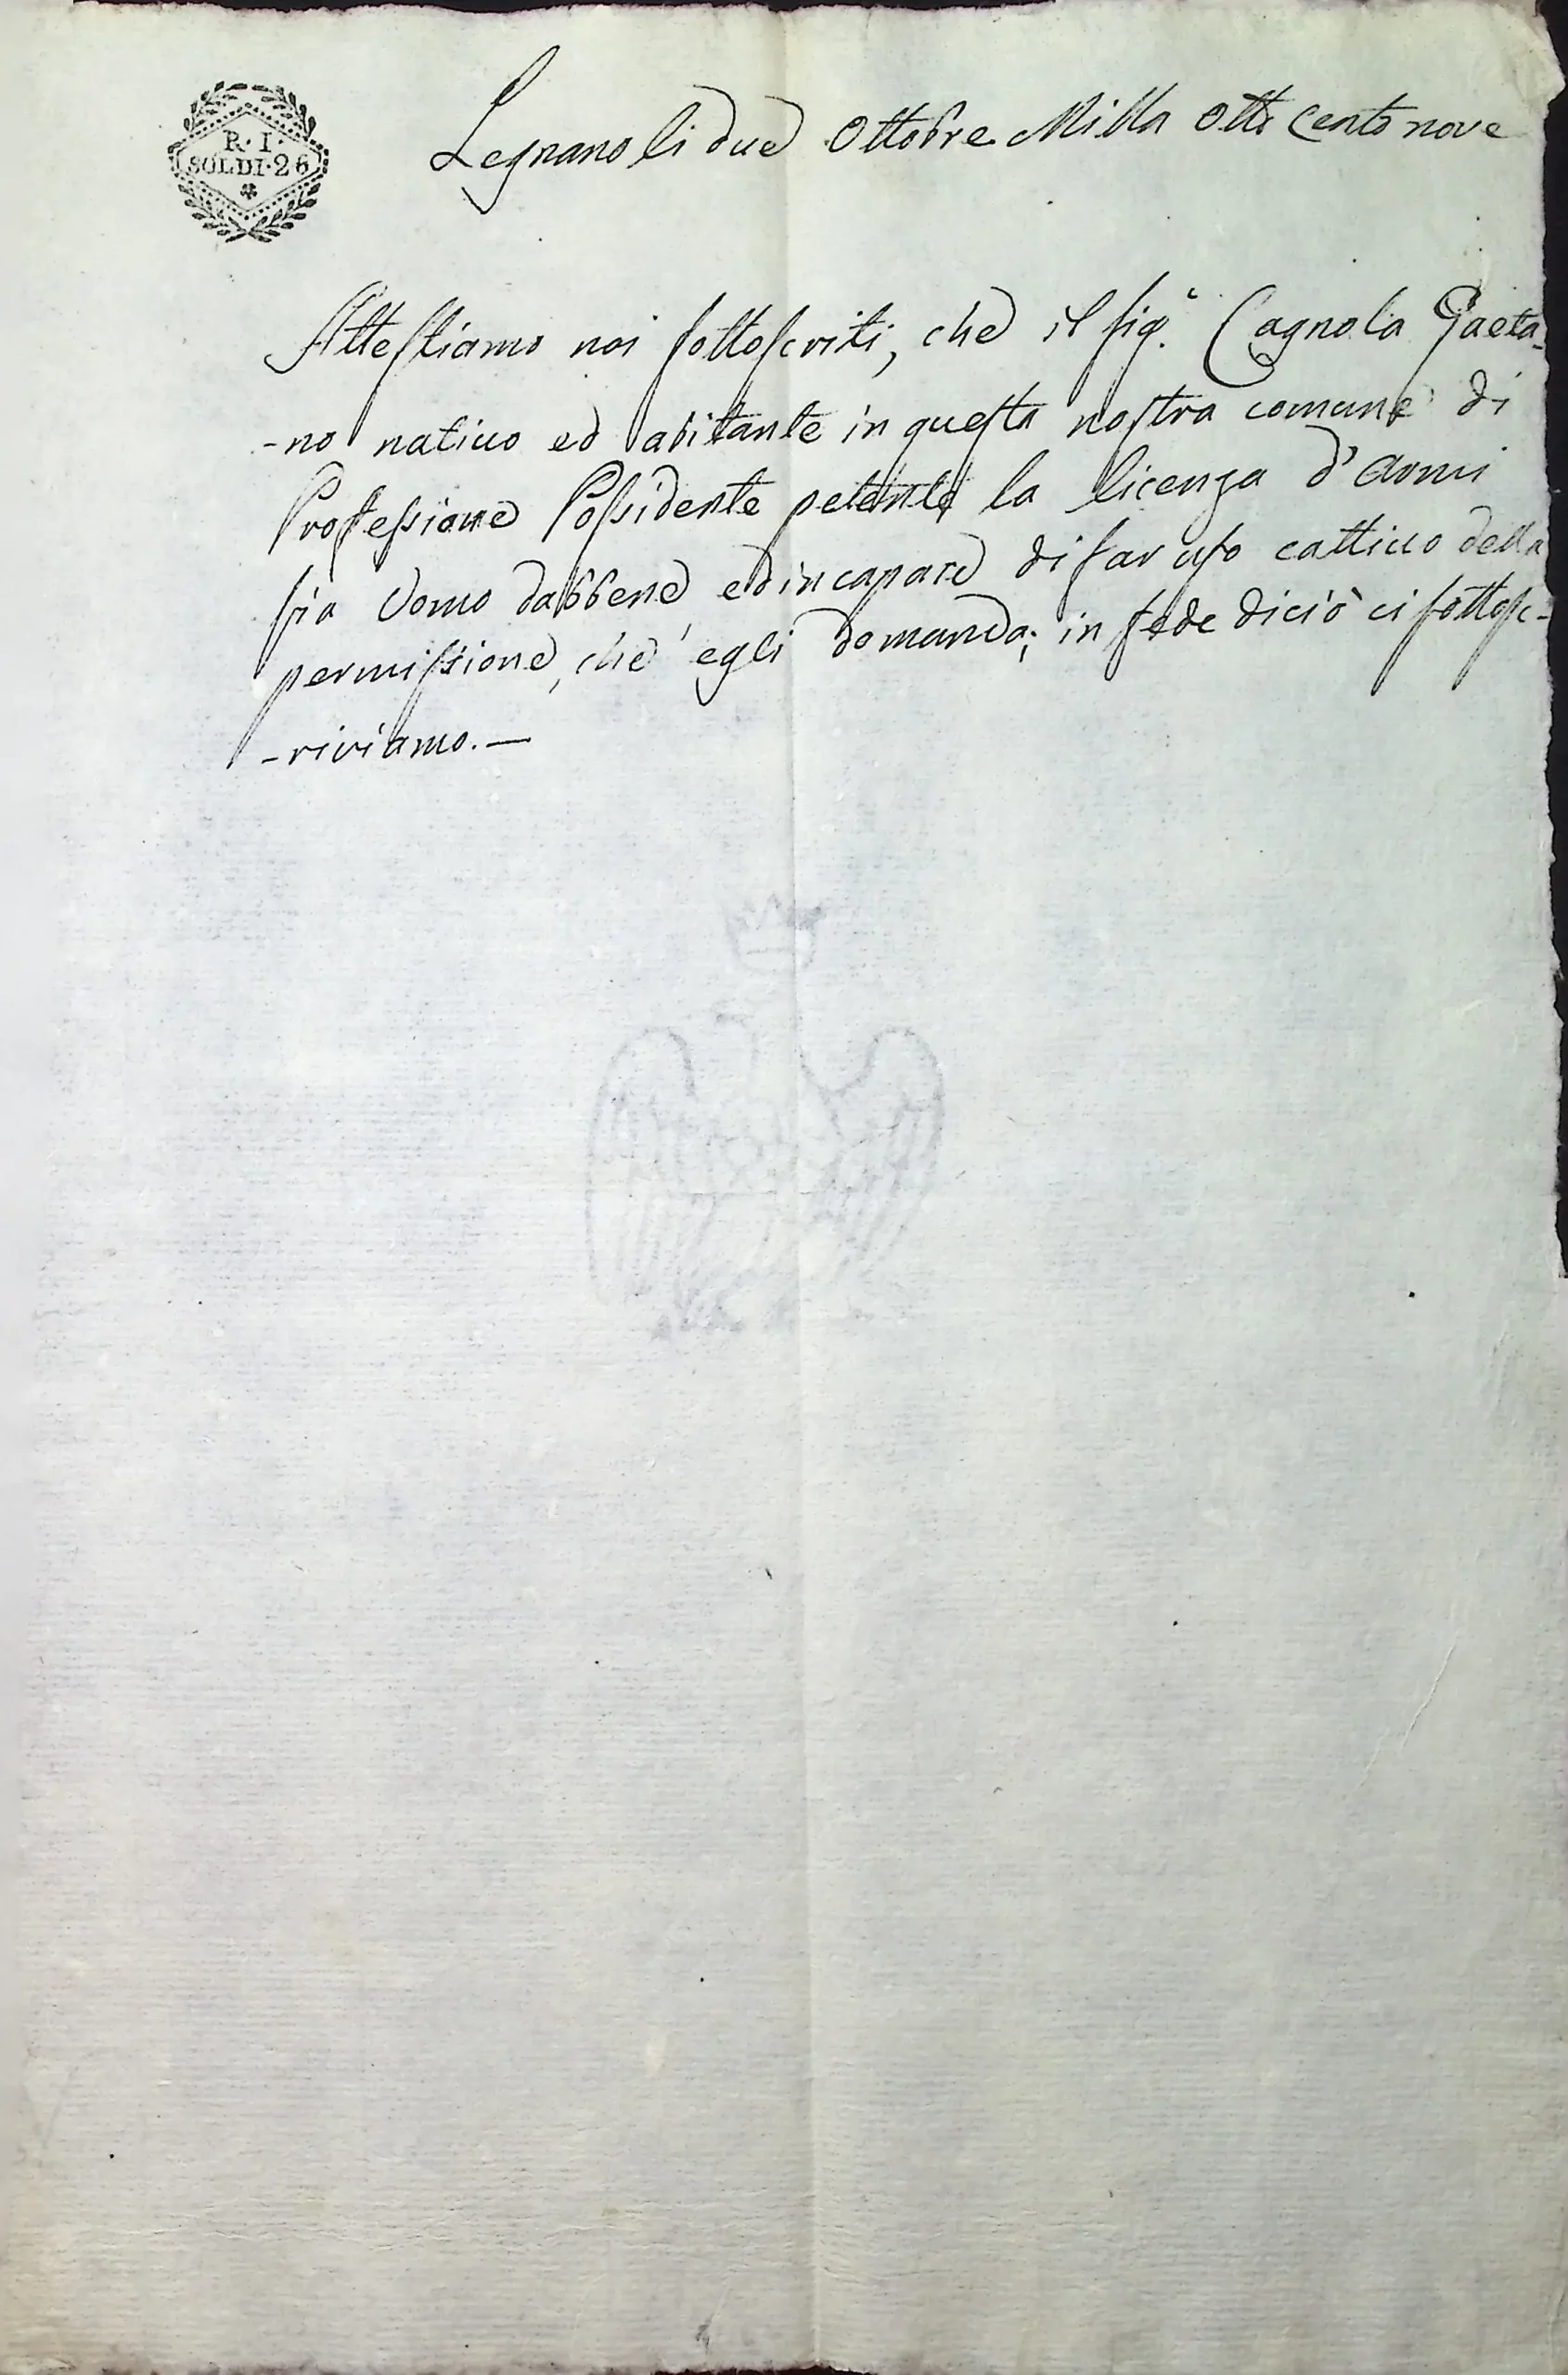 R. I.
SOLDI·26
Legnano li due Ottobre Mille Otto Cento nove
Atteſtiamo noi ſottoſcriti, che il ſigr. Cagnola Gaeta-
-no nativo ed abitante in queſta noſtra comune di
Profeſsione Poſsidente petente la licenza d'Armi
ſia Uomo dabbene, ed incapace di far uſo cattivo della
permiſsione, che egli domanda; in fede di ciò ci ſottoſc-
-riviamo. —